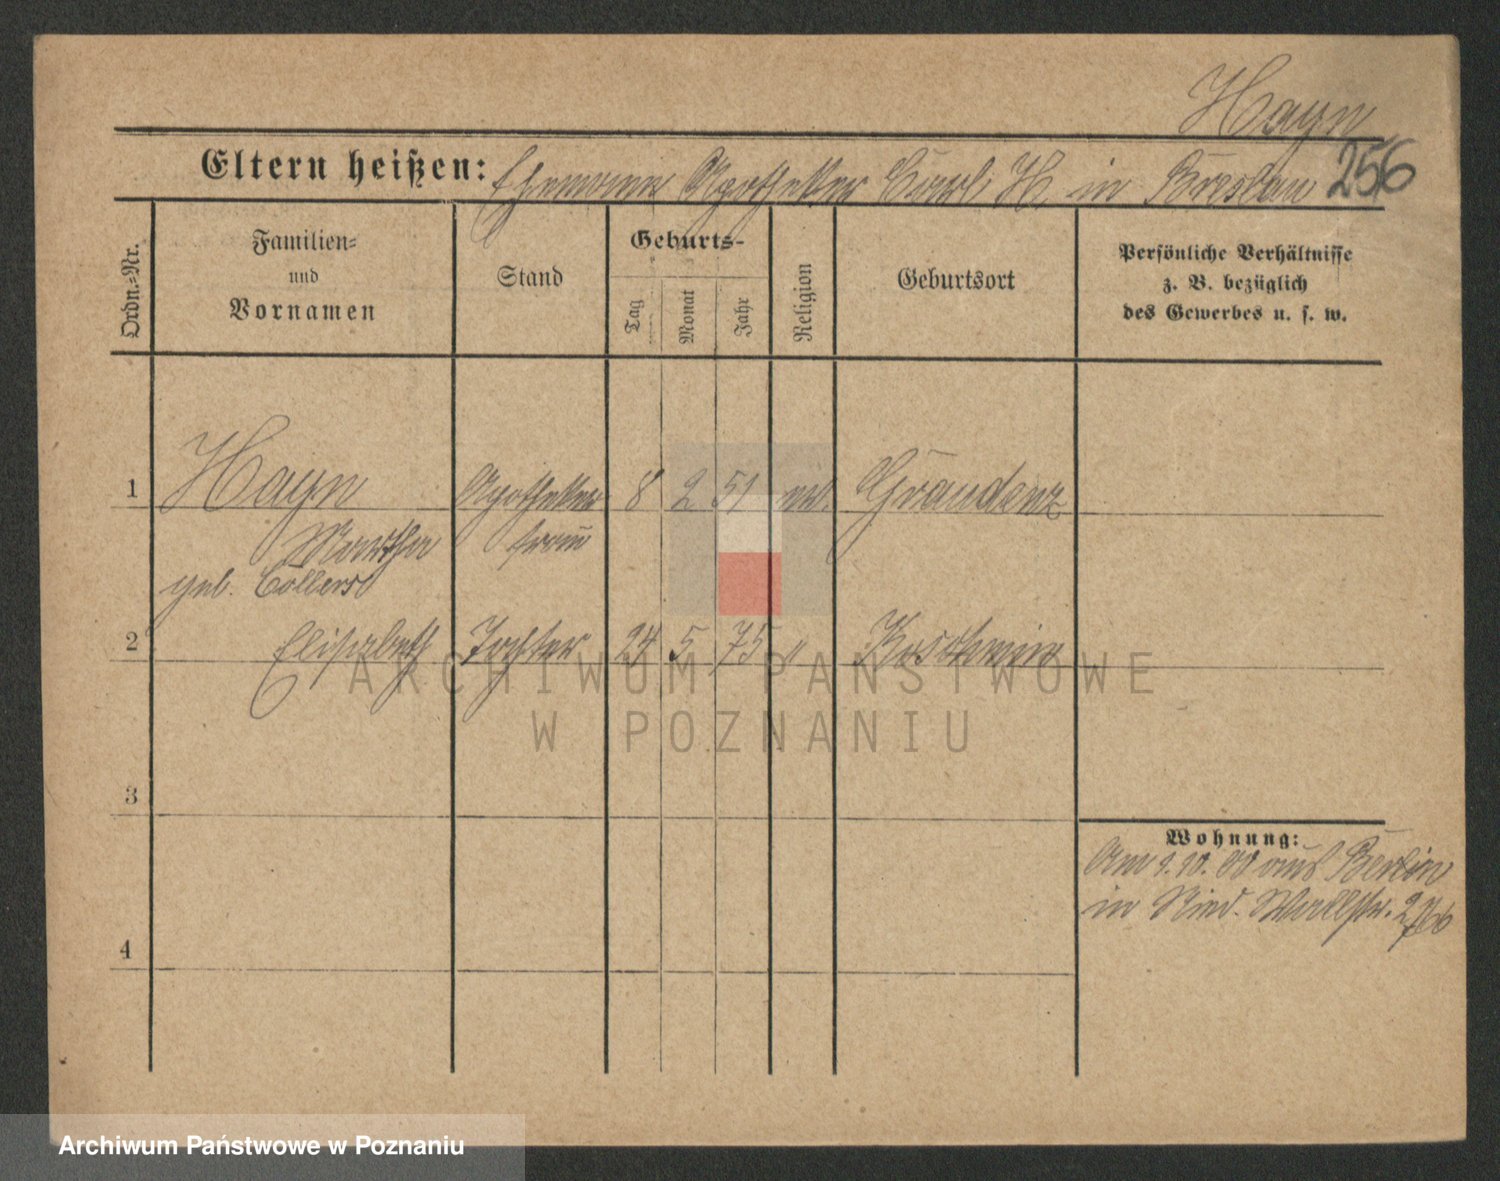 Hayn
Eltern heißen: Ehemann Apotheker Carl H. in Breslau 256
Ordn.-Nr.
Familien-
und
Vornamen
Stand
Geburts-
Tag
Monat
Jahr
Religion
Geburtsort
Persönliche Verhältnisse
z. B. bezüglich
des Gewerbes u. s. w.
1 Hayn Apotheker 8 2 51 Graudenz
Martha frau
geb.
2 Elisabeth Tochter 24 5 75 "
3
4
Wohnung:
Am 9.10.00 aus Berlin
in Wallstr.
ARCHIWUM PAŃSTWOWE
W POZNANIU
Archiwum Państwowe w Poznaniu